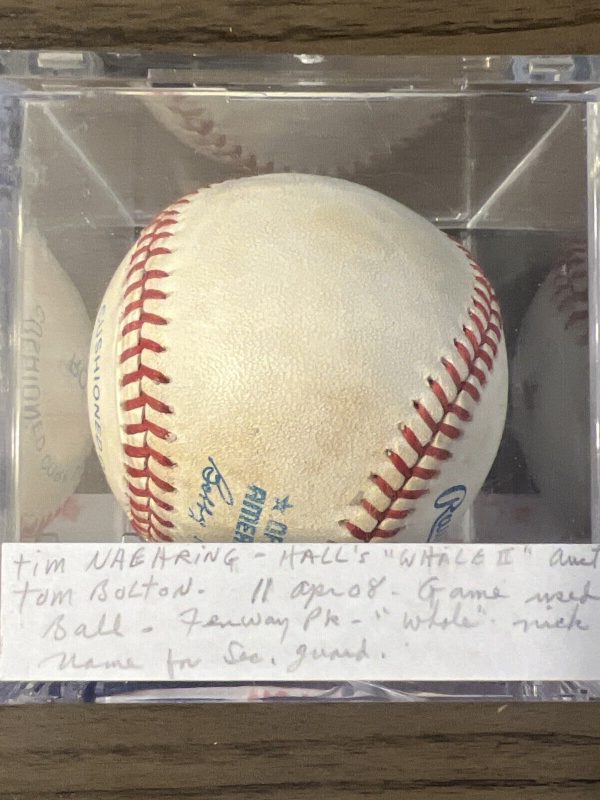 CUSHIONED
Bobby
AMER
Raw
Tim NAEHRING - HALL'S "WHALE II" auct
Tom BOLTON. 11 apr 08 - Game used
Ball - Fenway Pk - "Whale" nick
Name for Sec. guard.